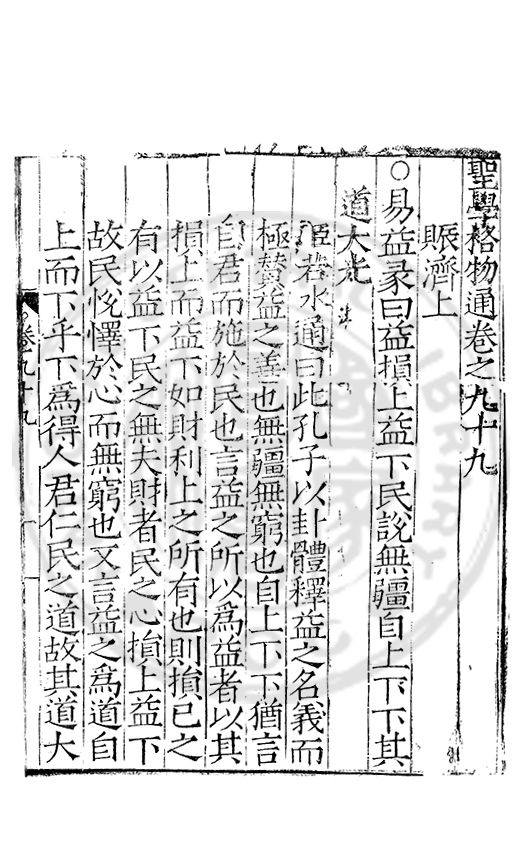 聖學格物通卷之九十九
賑濟上
○易益彖曰益損上益下民說無疆自上下下其
道大光
臣若水通曰此孔子以卦體釋益之名義而
極賛益之善也無疆無窮也自上下下猶言
自君而施於民也言益之所以爲益者以其
損上而益下如財利上之所有也則損已之
有以益下民之無夫財者民之心損上益下
故民恱懌於心而無窮也又言益之爲道自
上而下乎下爲得人君仁民之道故其道大
卷九十九